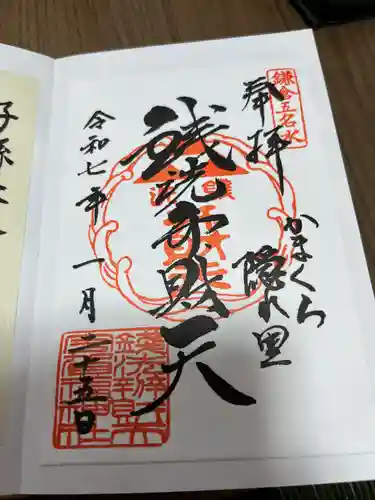 鎌倉五名水
奉拝
かまくら
隠れ里
銭洗弁財天
令和七年
一月
二十五日